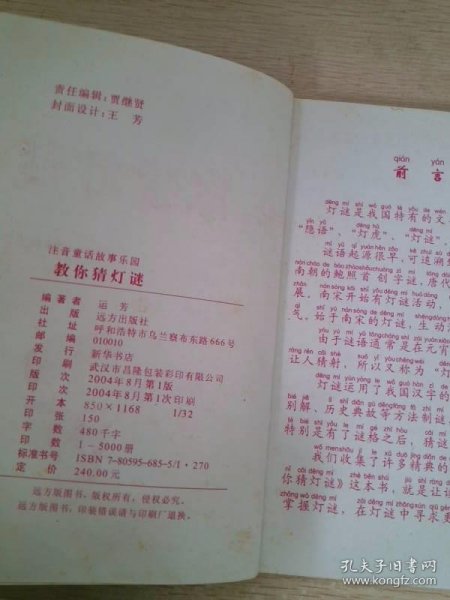 责任编辑:贾继贤
封面设计:王 芳
注音童话故事乐园
教你猜灯谜
编著者 运芳
出版 远方出版社
社址 呼和浩特市乌兰察布东路666号
邮编 010010
发行 新华书店
印刷 武汉市昌隆包装彩印有限公司
版次 2004年8月第1版
印次 2004年8月第1次印刷
开本 850×1168 1/32
印张 150
字数 480千字
印数 1-5000册
标准书号 ISBN 7-80595-685-5/I·270
定价 240.00元
远方版图书,版权所有,侵权必究。
远方版图书,印装错误请与印刷厂退换。
qián yán
前言
灯谜是我国特有的文
“隐语”、“灯虎”、“灯谜”、
谜语起源很早,可追溯
南朝的鲍照首创字谜,唐代
展,南宋开始有灯谜活动,
气,始于南宋的灯谜,生动
由于谜语通常是在元宵
让人猜射,所以又称为“灯
灯谜运用了我国汉字的
别解、历史典故等方法制谜
特别是有了谜格之后,猜谜
我们收集了许多精典的
你猜灯谜》这本书,就是让读
掌握灯谜,在灯谜中寻求更
孔夫子旧书网